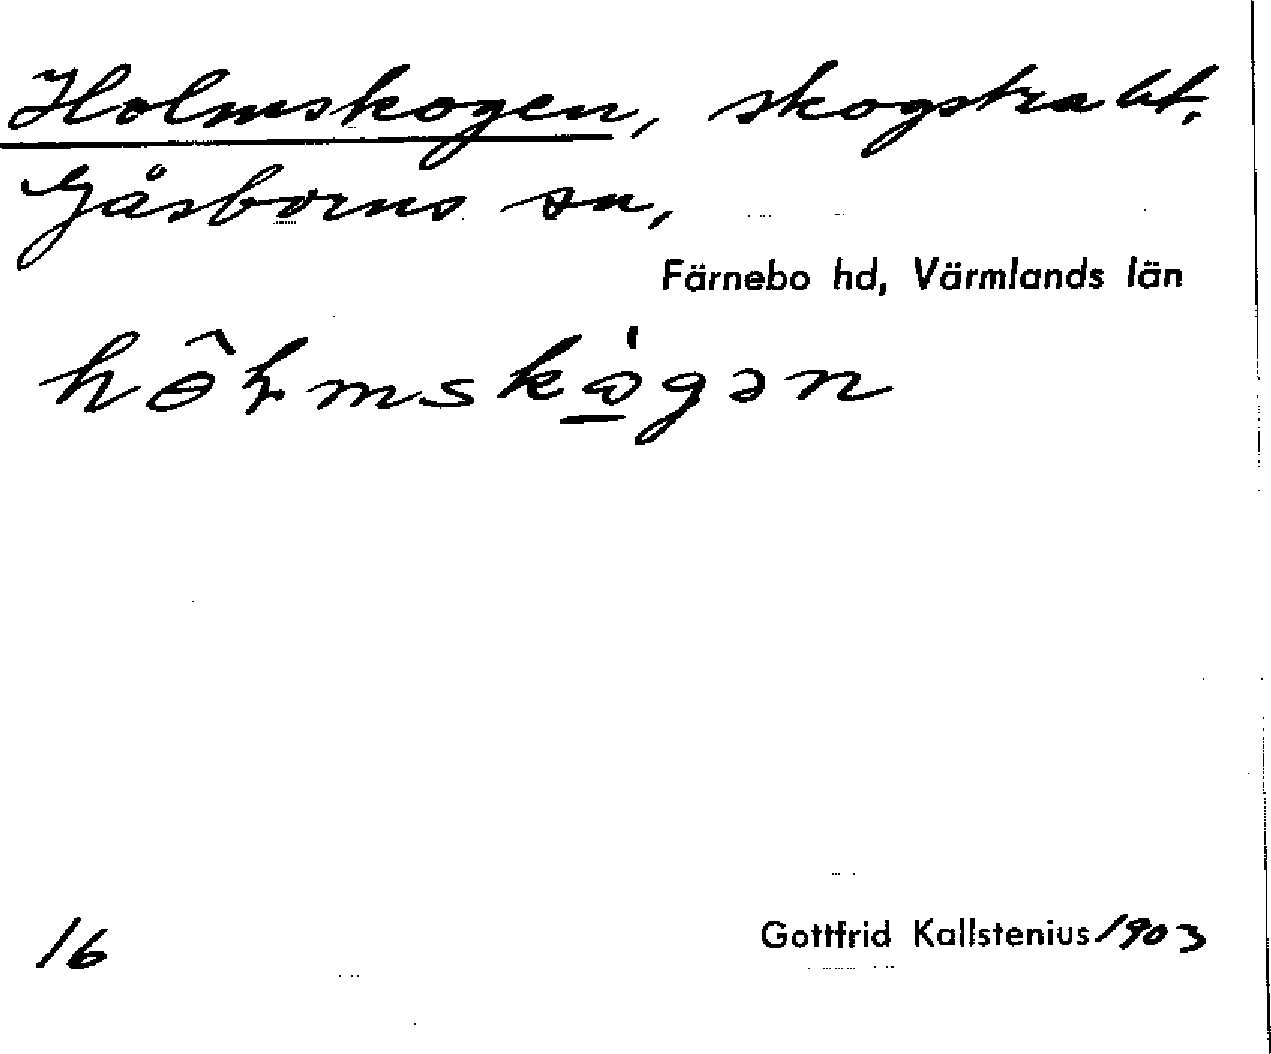 Holmskogen, skogstrakt,
Gåsborns sn,
Färnebo hd, Värmlands län
16
Gottfrid Kallstenius 1903